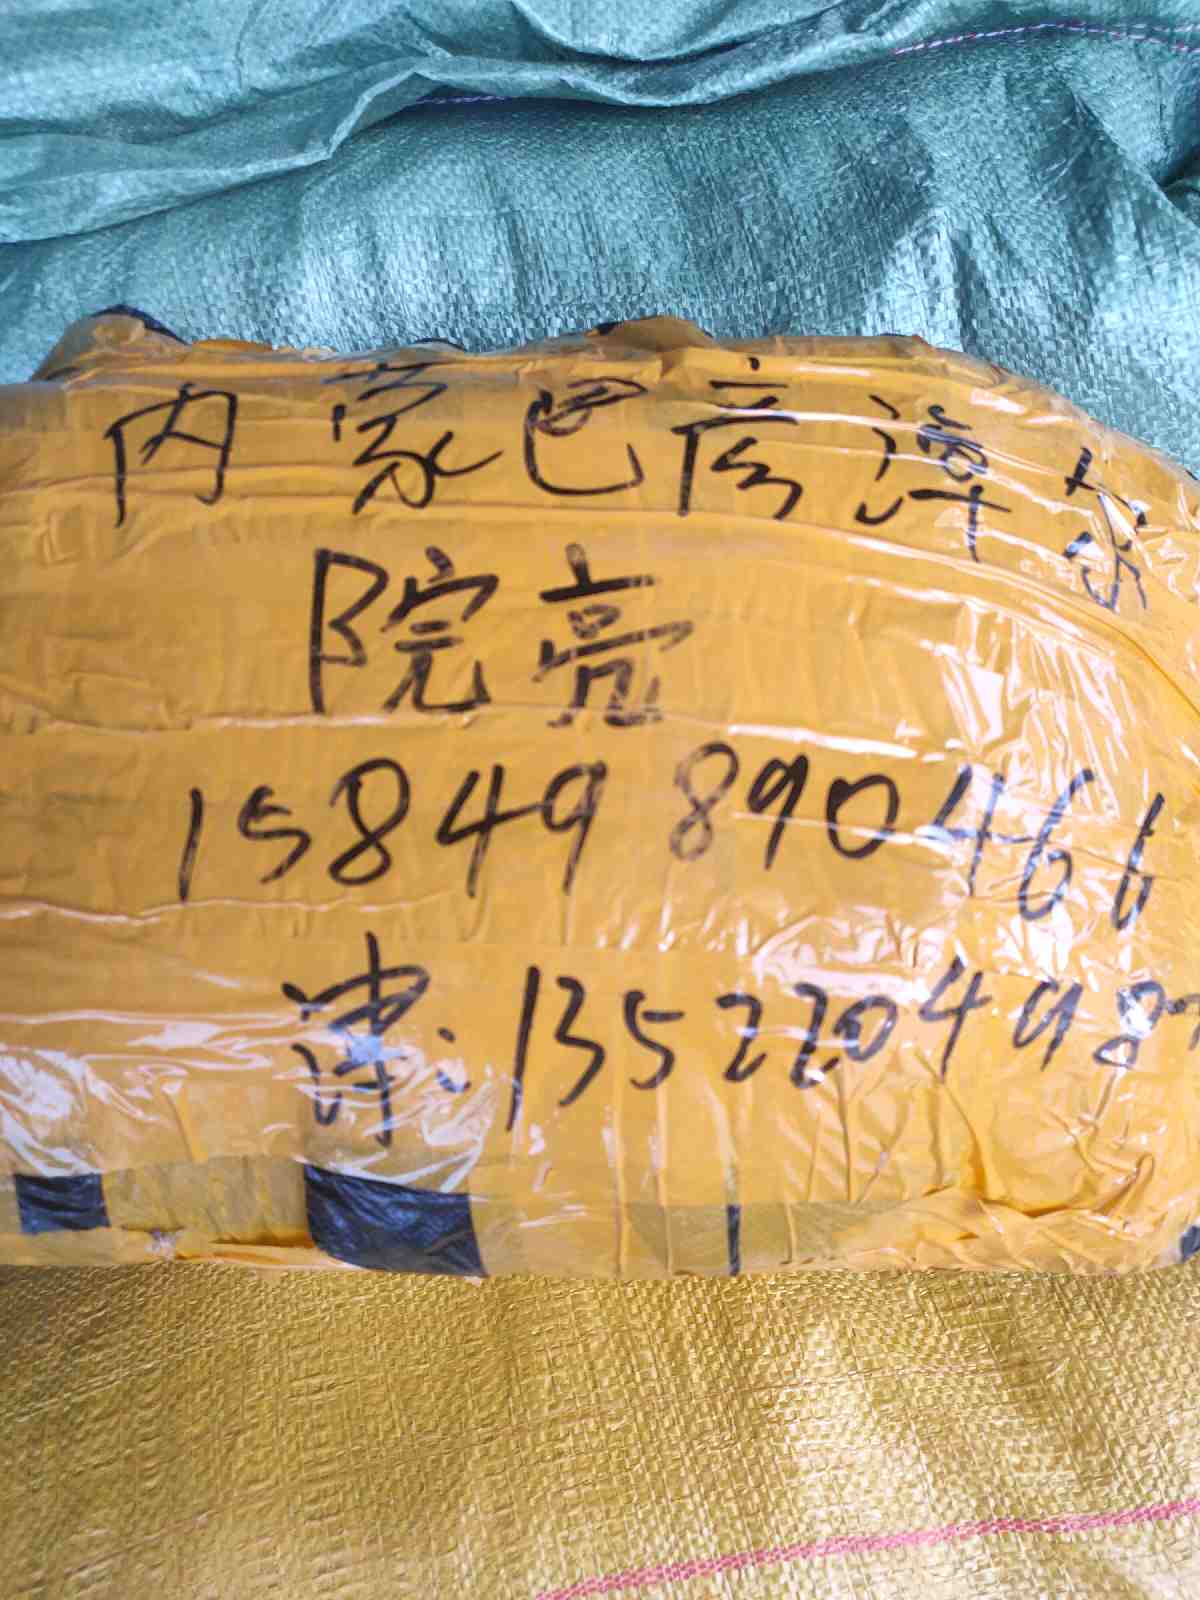 内蒙巴彦淖尔
院亮
15849890466
津:1352204987